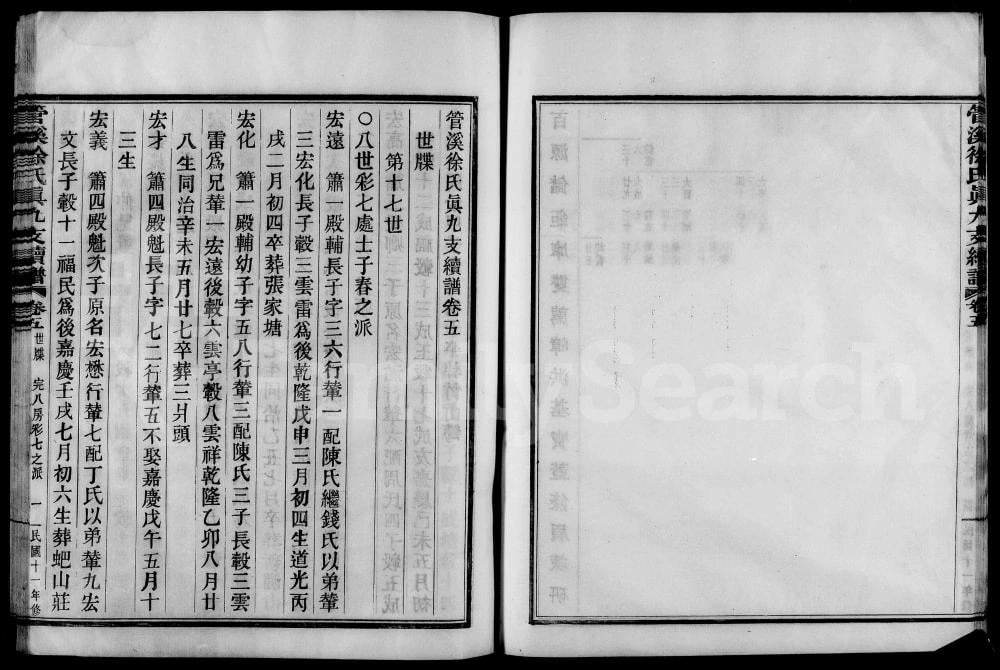 管溪徐氏眞九支續譜卷五
世牒
第十七世
〇八世彩七處士子春之派
宏遠 簫一殿輔長子字三六行輦一配陳氏繼錢氏以弟輦
三宏化長子轂三雲雷爲後乾隆戊申三月初四生道光丙
戌二月初四卒葬張家塘
宏化 簫一殿輔幼子字五八行輦三配陳氏三子長轂三雲
雷爲兄輦一宏遠後轂六雲亭轂八雲祥乾隆乙卯八月廿
八生同治辛未五月廿七卒葬三爿頭
宏才 簫四殿魁長子字七二行輦五不娶嘉慶戊午五月十
三生
宏義 簫四殿魁次子原名宏懋行輦七配丁氏以弟輦九宏
文長子轂十一福民爲後嘉慶壬戌七月初六生葬蚆山莊
管溪徐氏眞九支續譜 卷五 世牒 完八房彩七之派 一 民國十一年修
管溪徐氏眞九支續譜 卷五
FamilySearch